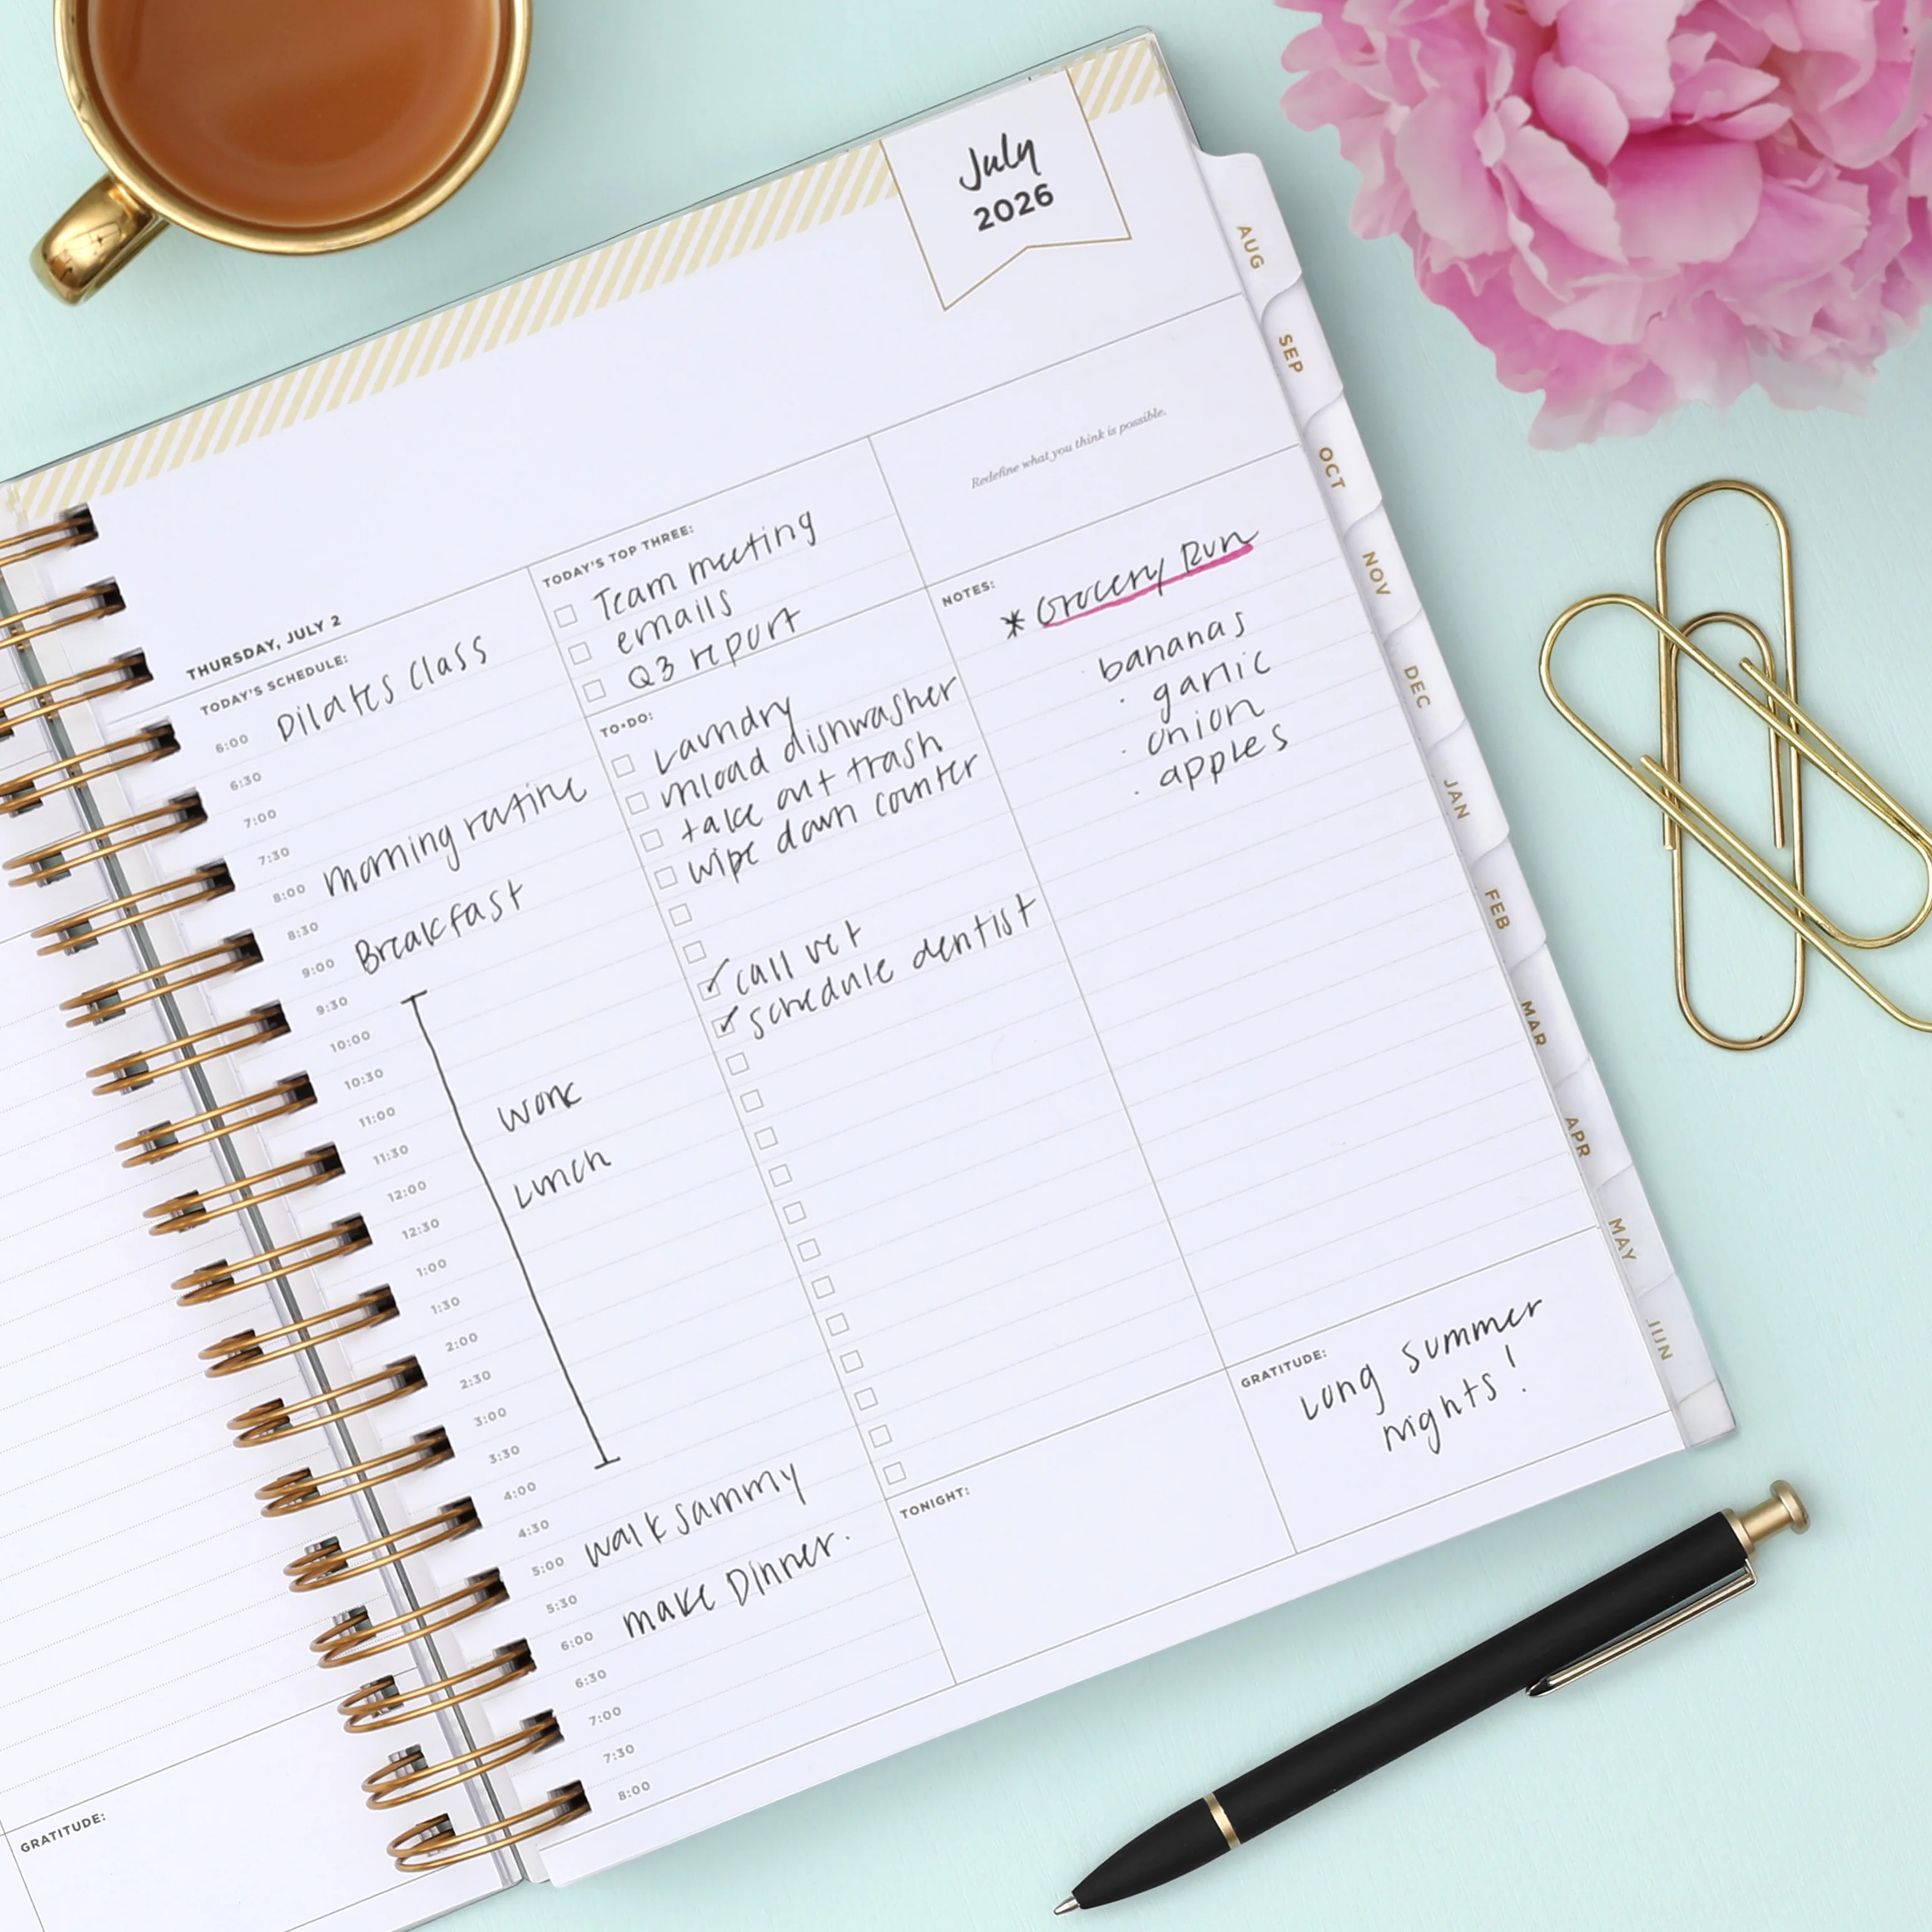 July
2026
Redefine what you think is possible.
THURSDAY, JULY 2
TODAY'S SCHEDULE:
6:00 Pilates class
6:30
7:00
7:30
8:00 morning routine
8:30
9:00 Breakfast
9:30
10:00
10:30
11:00 work
11:30
12:00 Lunch
12:30
1:00
1:30
2:00
2:30
3:00
3:30
4:00
4:30
5:00 walk sammy
5:30
6:00 make Dinner.
6:30
7:00
7:30
8:00
TODAY'S TOP THREE:
Team meeting
emails
Q3 report
TO-DO:
Laundry
unload dishwasher
take out trash
wipe down counter
call vet
schedule dentist
TONIGHT:
NOTES:
* Grocery Run
· bananas
· garlic
· onion
· apples
GRATITUDE:
Long summer
nights!
AUG
SEP
OCT
NOV
DEC
JAN
FEB
MAR
APR
MAY
JUN
GRATITUDE: